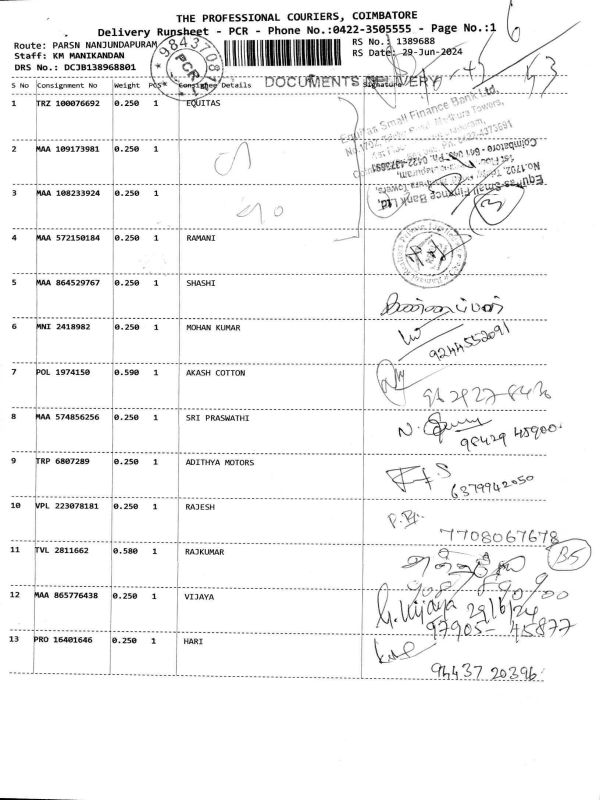 THE PROFESSIONAL COURIERS, COIMBATORE
Delivery Runsheet - PCR - Phone No.:0422-3505555 - Page No.:1
Route: PARSN NANJUNDAPURAM
RS No.: 1389688
Staff: KM MANIKANDAN
RS Date: 29-Jun-2024
DRS No.: DCJB138968801
PCR
DOCUMENTS DELIVERY
S No Consignment No Weight PCS Consignee Details Signature
1 TRZ 100076692 0.250 1 EQUITAS
Equitas Small Finance Bank Ltd,
2 MAA 109173981 0.250 1
3 MAA 108233924 0.250 1
Equitas Small Finance Bank Ltd,
4 MAA 572150184 0.250 1 RAMANI
5 MAA 864529767 0.250 1 SHASHI
6 MNI 2418982 0.250 1 MOHAN KUMAR
9244552091
7 POL 1974150 0.590 1 AKASH COTTON
8 MAA 574856256 0.250 1 SRI PRASWATHI
98429 45900
9 TRP 6807289 0.250 1 ADITHYA MOTORS
6379942050
10 VPL 223078181 0.250 1 RAJESH
7708067678
11 TVL 2811662 0.580 1 RAJKUMAR
B5
12 MAA 865776438 0.250 1 VIJAYA
G. Vijaya 29/6/24
97905-45877
13 PRO 16401646 0.250 1 HARI
94437 20396